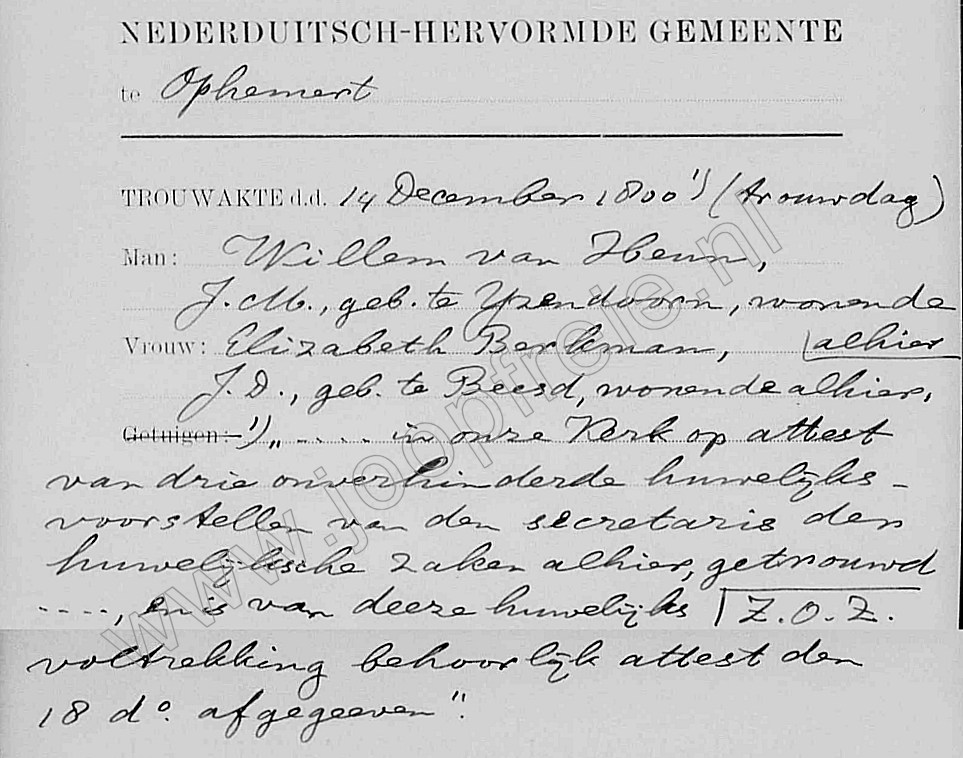 NEDERDUITSCH-HERVORMDE GEMEENTE
te Ophemert
TROUWAKTE d.d. 14 December 1800 ¹) (trouwdag)
Man: Willem van Heun,
J.M., geb. te Yzendoorn, wonende
Vrouw: Elizabeth Berkman, alhier
J.D., geb. te Beesd, wonende alhier,
Getuigen: - ¹) „ ..... in onze Kerk op attest
van drie onverhinderde huwelijks-
voorstellen van den secretaris der
huwelijksche zaken alhier, getrouwd
...., en is van deeze huwelijks Z.O.Z.
voltrekking behoorlijk attest den
18 do. afgegeeven".
www.joopfreie.nl